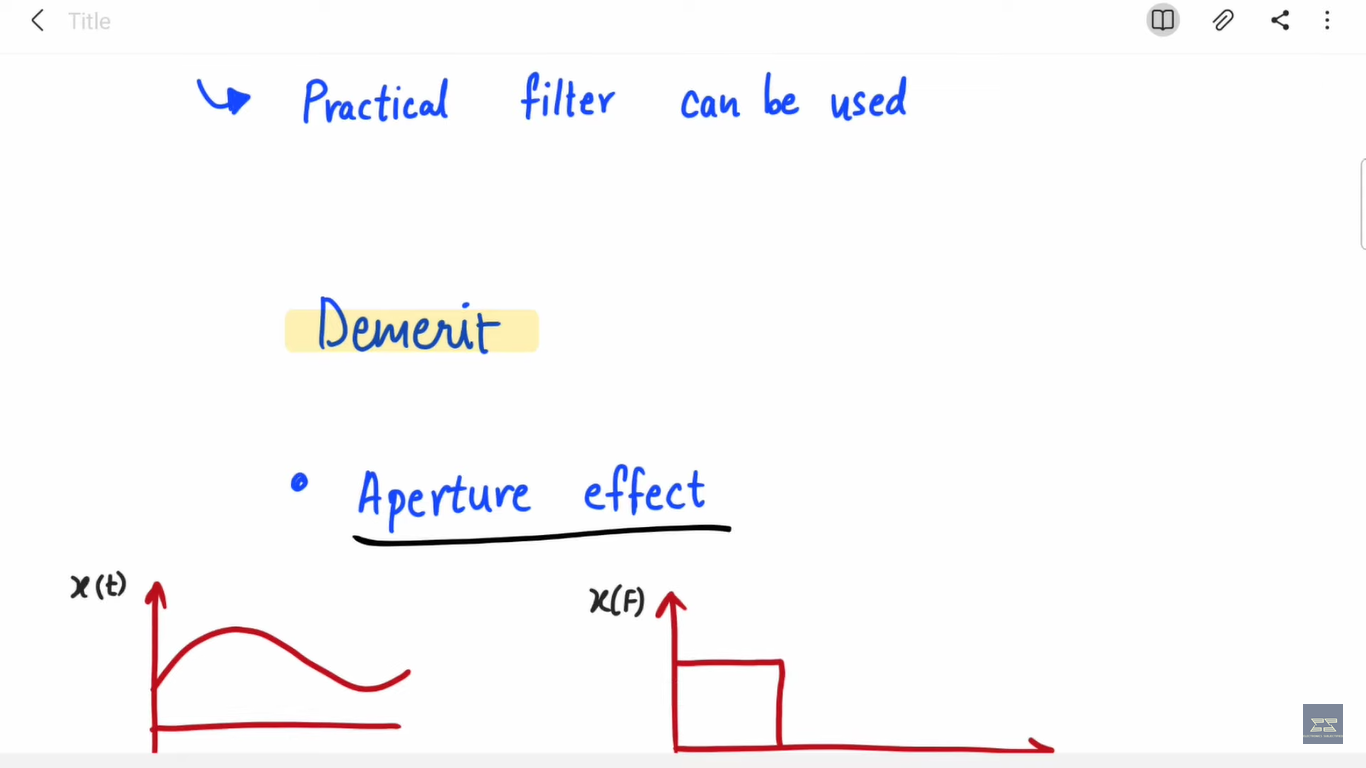 Title
Practical filter can be used
Demerit
• Aperture effect
x(t)
x(F)